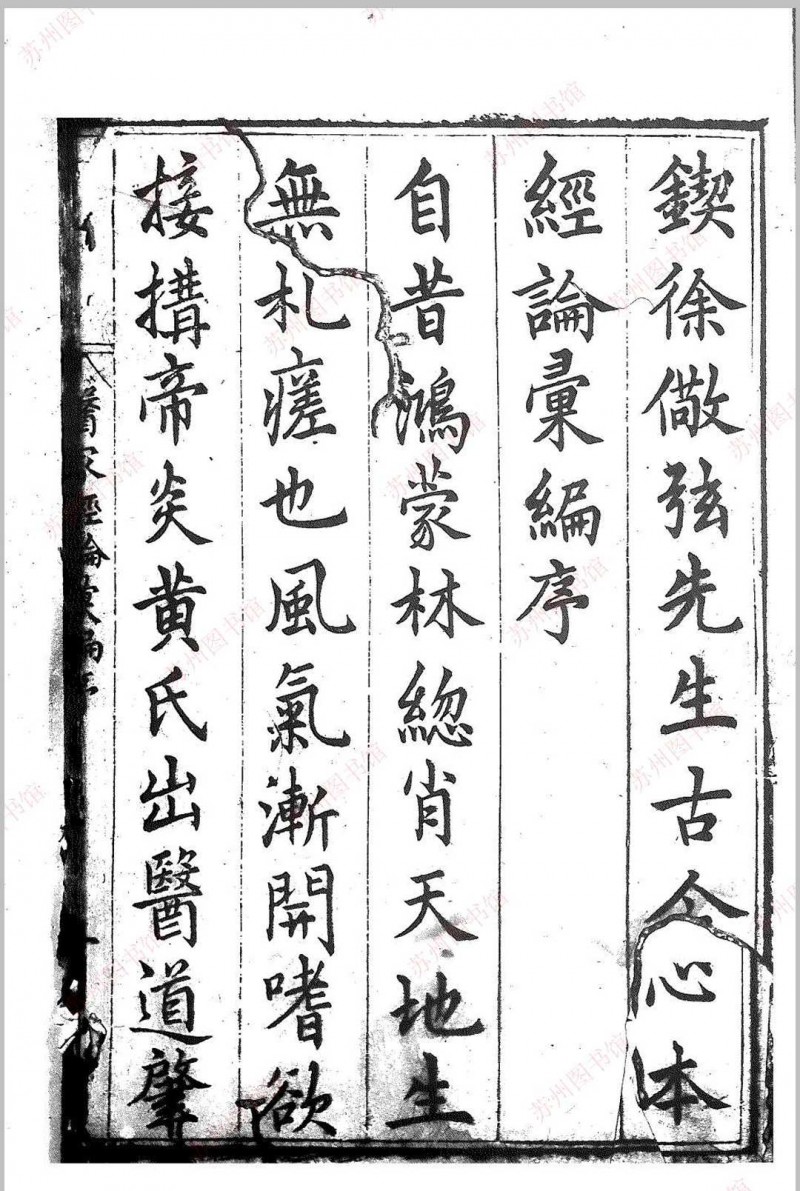 鍥徐儆弦先生古今心本
經論彙編序
自昔鴻蒙林總肖天地生
無札瘥也風氣漸開嗜欲
接搆帝炎黄氏出醫道肇
醫家經論彙編序
苏州图书馆